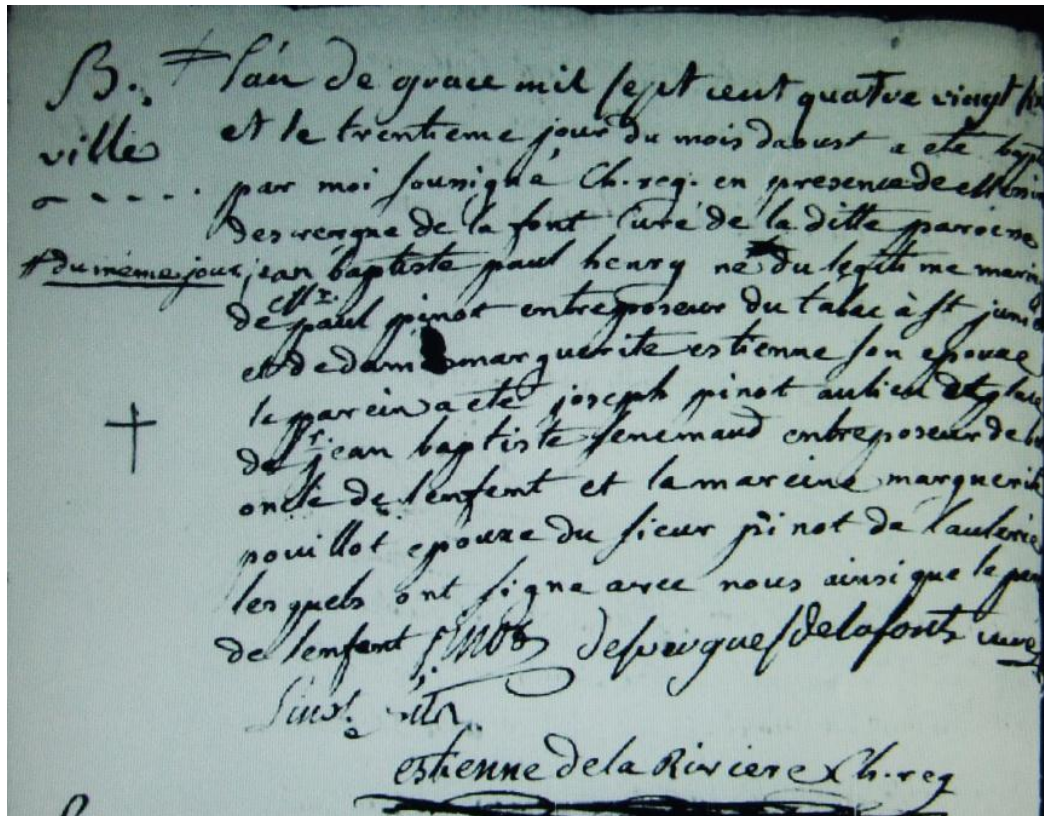 B. + Lan de grace mil sept cent quatre vingt six
ville et le trentieme jour du mois daoust a eté bapt
par moi sousigné Ch. reg. en presence de Messir
desvergne de la font curé de la ditte paroisse
+ du même jour jean baptiste paul henry né + du legitime mariag
de Mr. paul pinot entreposeur du tabac à st juni
et de dame marguerite estienne son epouze
le parein a eté joseph pinot au lieu et place
de sr. jean baptiste senemaud entreposeur de
oncle de lenfent et la mareine marguerite
pouillot epouze du sieur pinot de lauterie
lesquels ont signé avec nous ainsi que le per
de lenfent pinot desvergne delafont curé
pinot
estienne de la Riviere Ch. reg